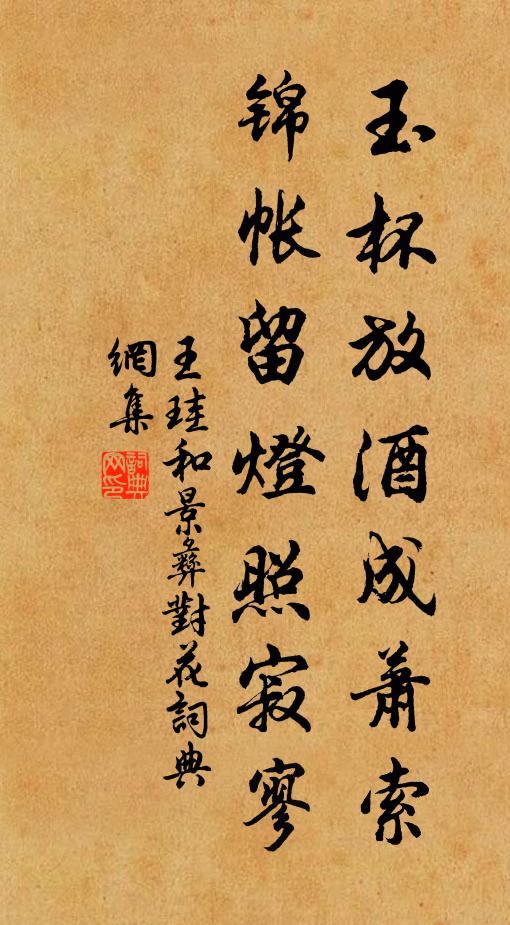 玉杯放酒成蕭索
錦帳留燈照寂寥
王珪和景彝對花詞典
網集
詞典
网印